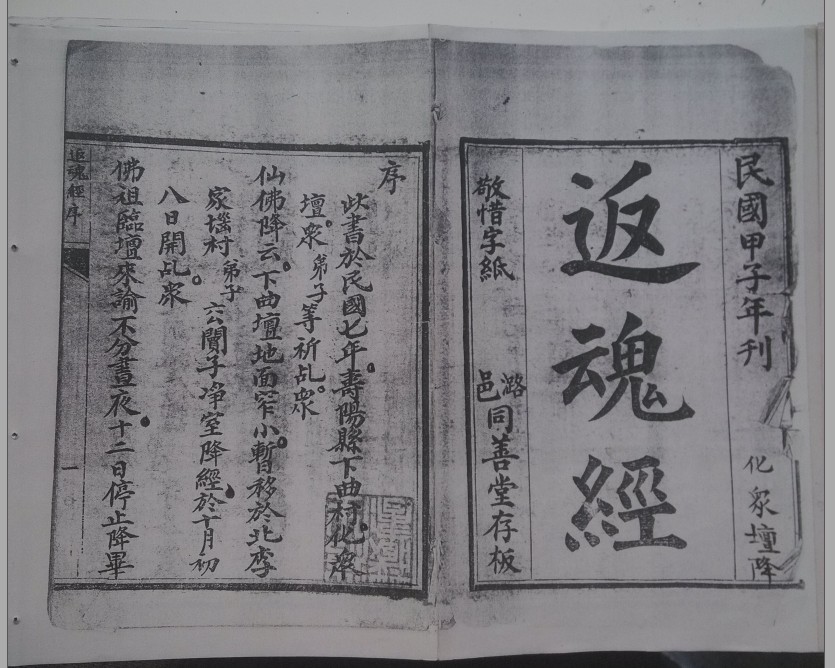 民國甲子年刊
化衆壇降
返魂經
敬惜字紙
潞邑同善堂存板
序
此書於民國七年。壽陽縣下曲村化衆
壇。衆弟子等祈乩。衆
仙佛降云。下曲壇地面窄小。暫移於北李
家堖村弟子六公閆子净室降經。於十月初
八日開乩。衆
佛祖臨壇來諭不分晝夜。十二日停止降畢
返魂經序
一